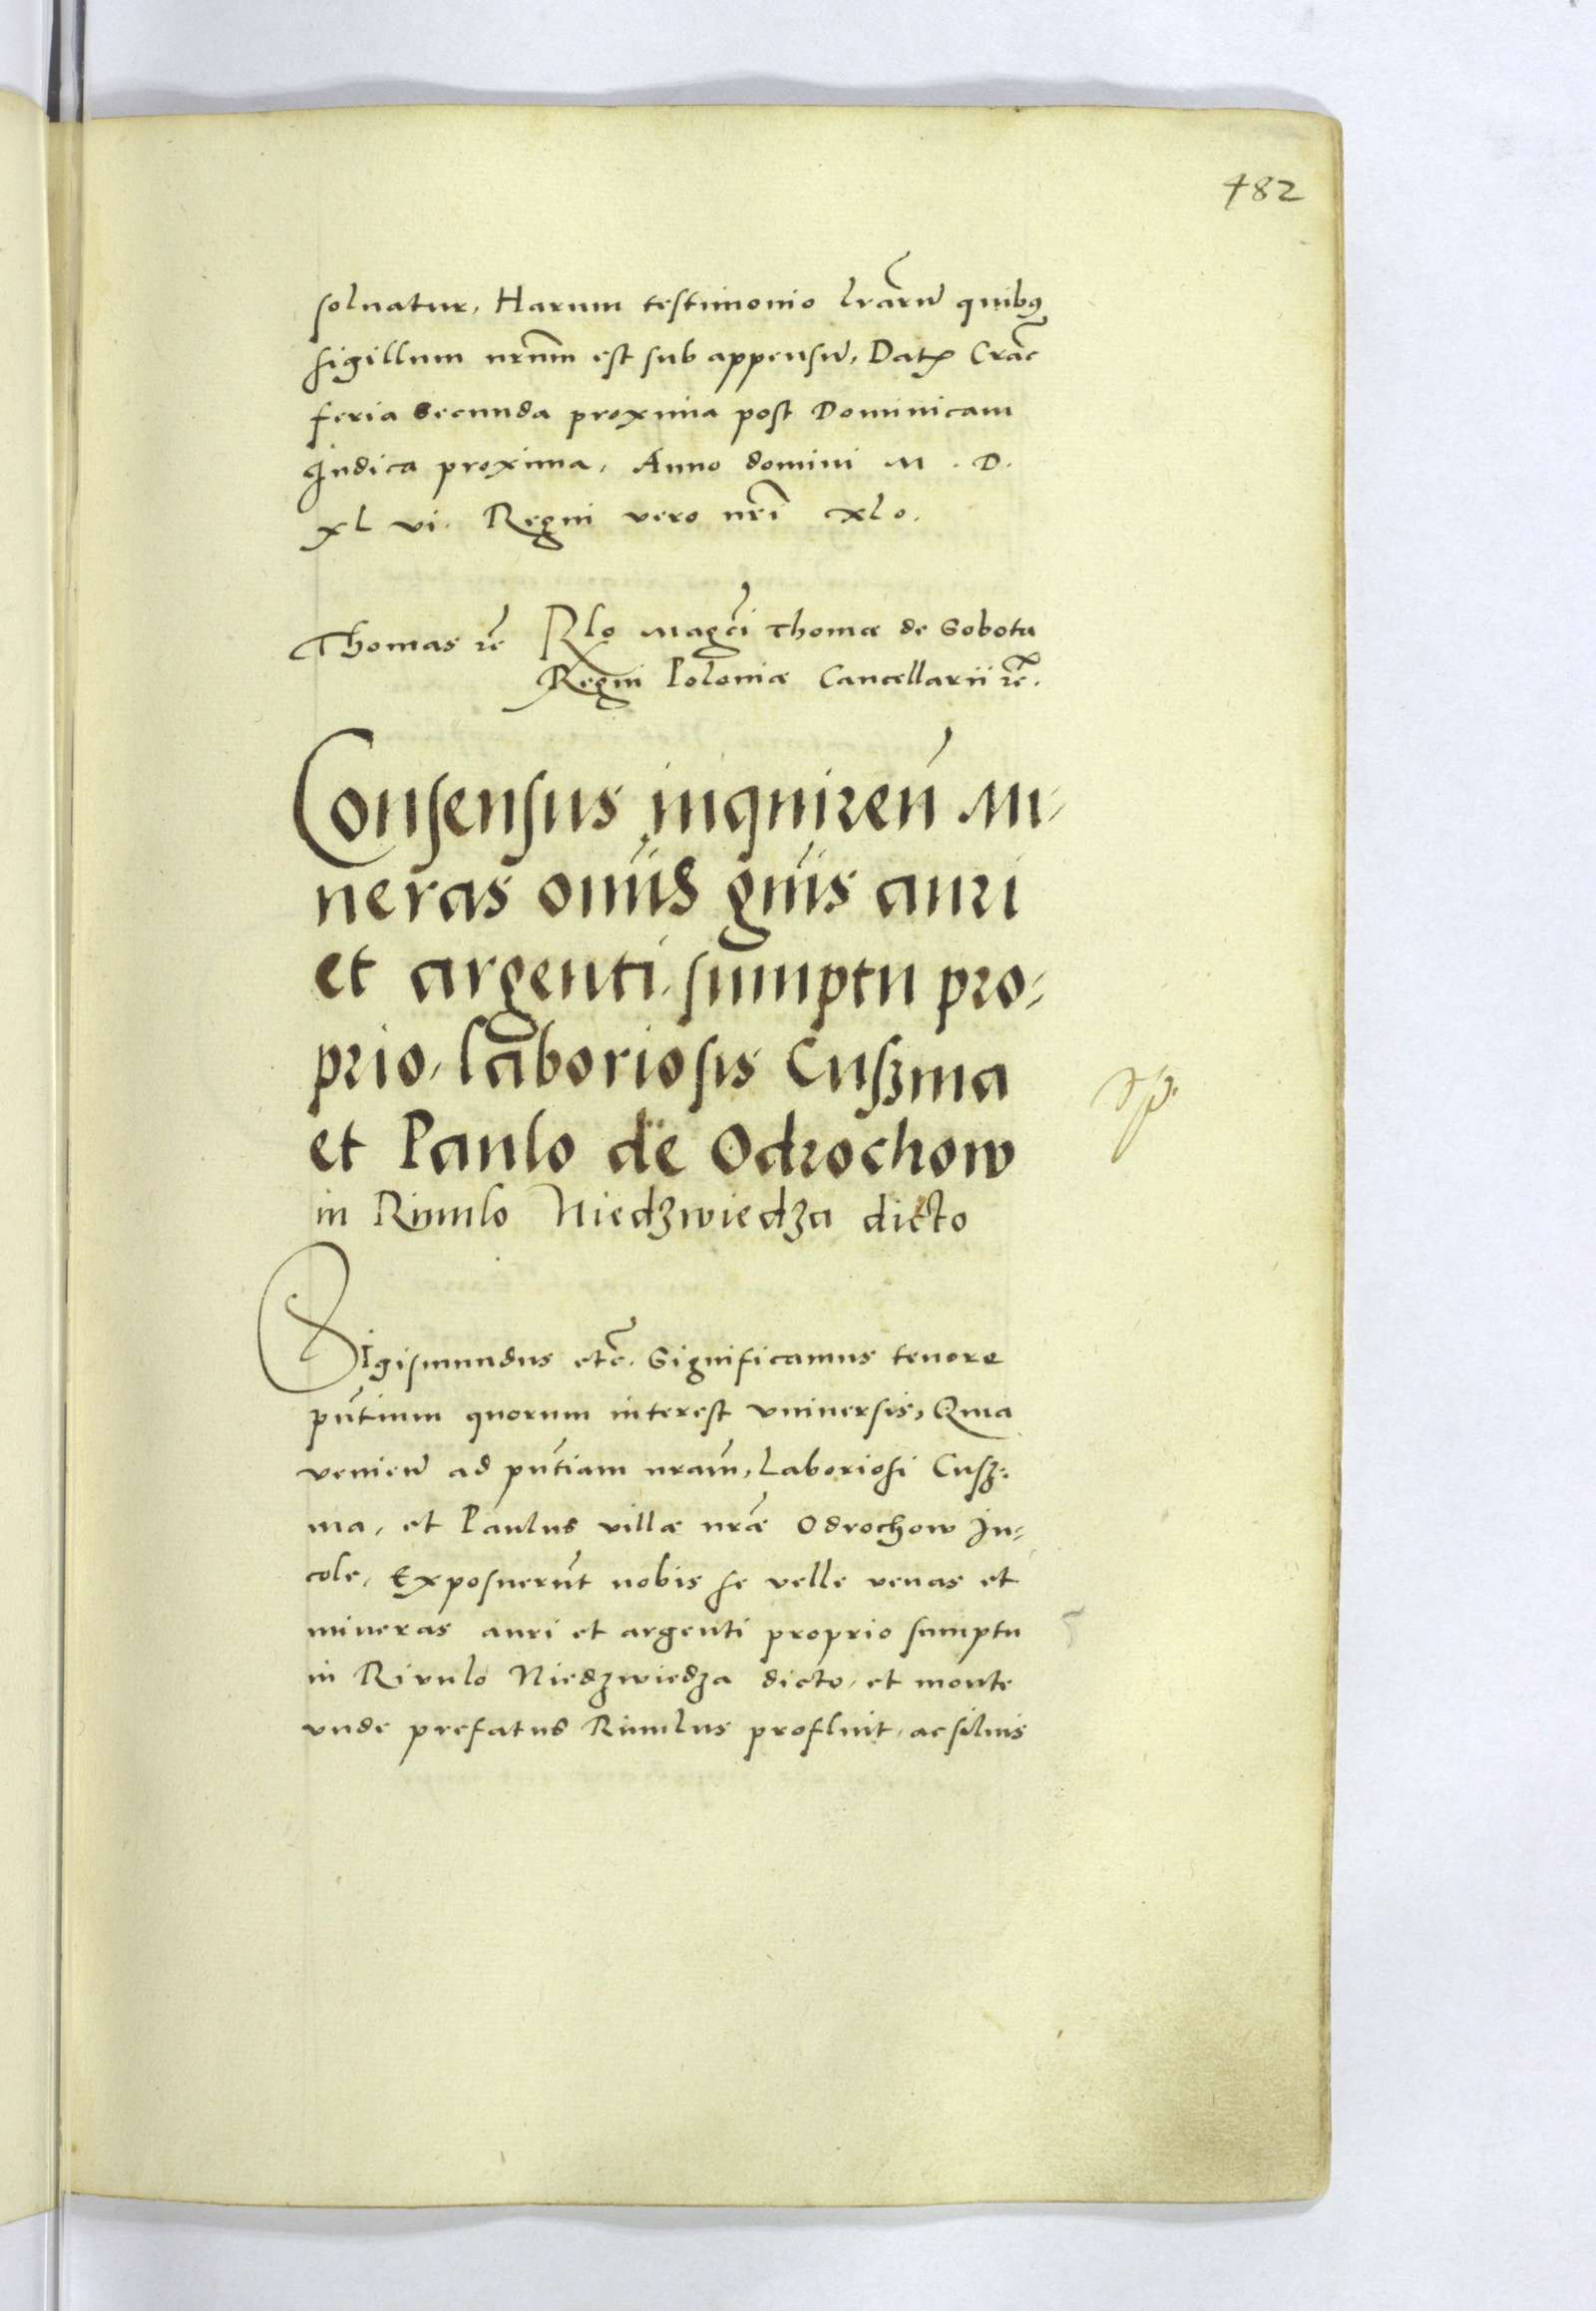 482
solvatur, Harum testimonio lrãrũ quibꝯ
sigillum nrũm est sub appensũ, Datꝭ Crãc
feria Secunda proxima post Dominicam
Judica proxima, Anno domini M. D.
xl vi. Regni vero nrĩ xlo.
Thomas rẽ Rlo Magcĩ Thomæ de Sobota
Regni Poloniæ Cancellarii rẽ.
Consensus inquireñ Mi-
neras omĩs gñis auri
et argenti, sumptu pro-
prio, laboriosis Cuszma
et Paulo de Odrochow
in Rivulo Niedzwiedza dicto
Sigismundus etc̃. Significamus tenore
pñtium quorum interest vniversis, Quia
venieñ ad pñtiam nrãm, Laboriosi Cusz-
ma, et Paulus villæ nræ̃ Odrochow Jn-
cole, Exposuerũt nobis se velle venas et
mineras auri et argenti proprio sumptu
in Rivulo Niedzwiedza dicto, et monte
vnde prefatus Rivulus profluit, ac silvis